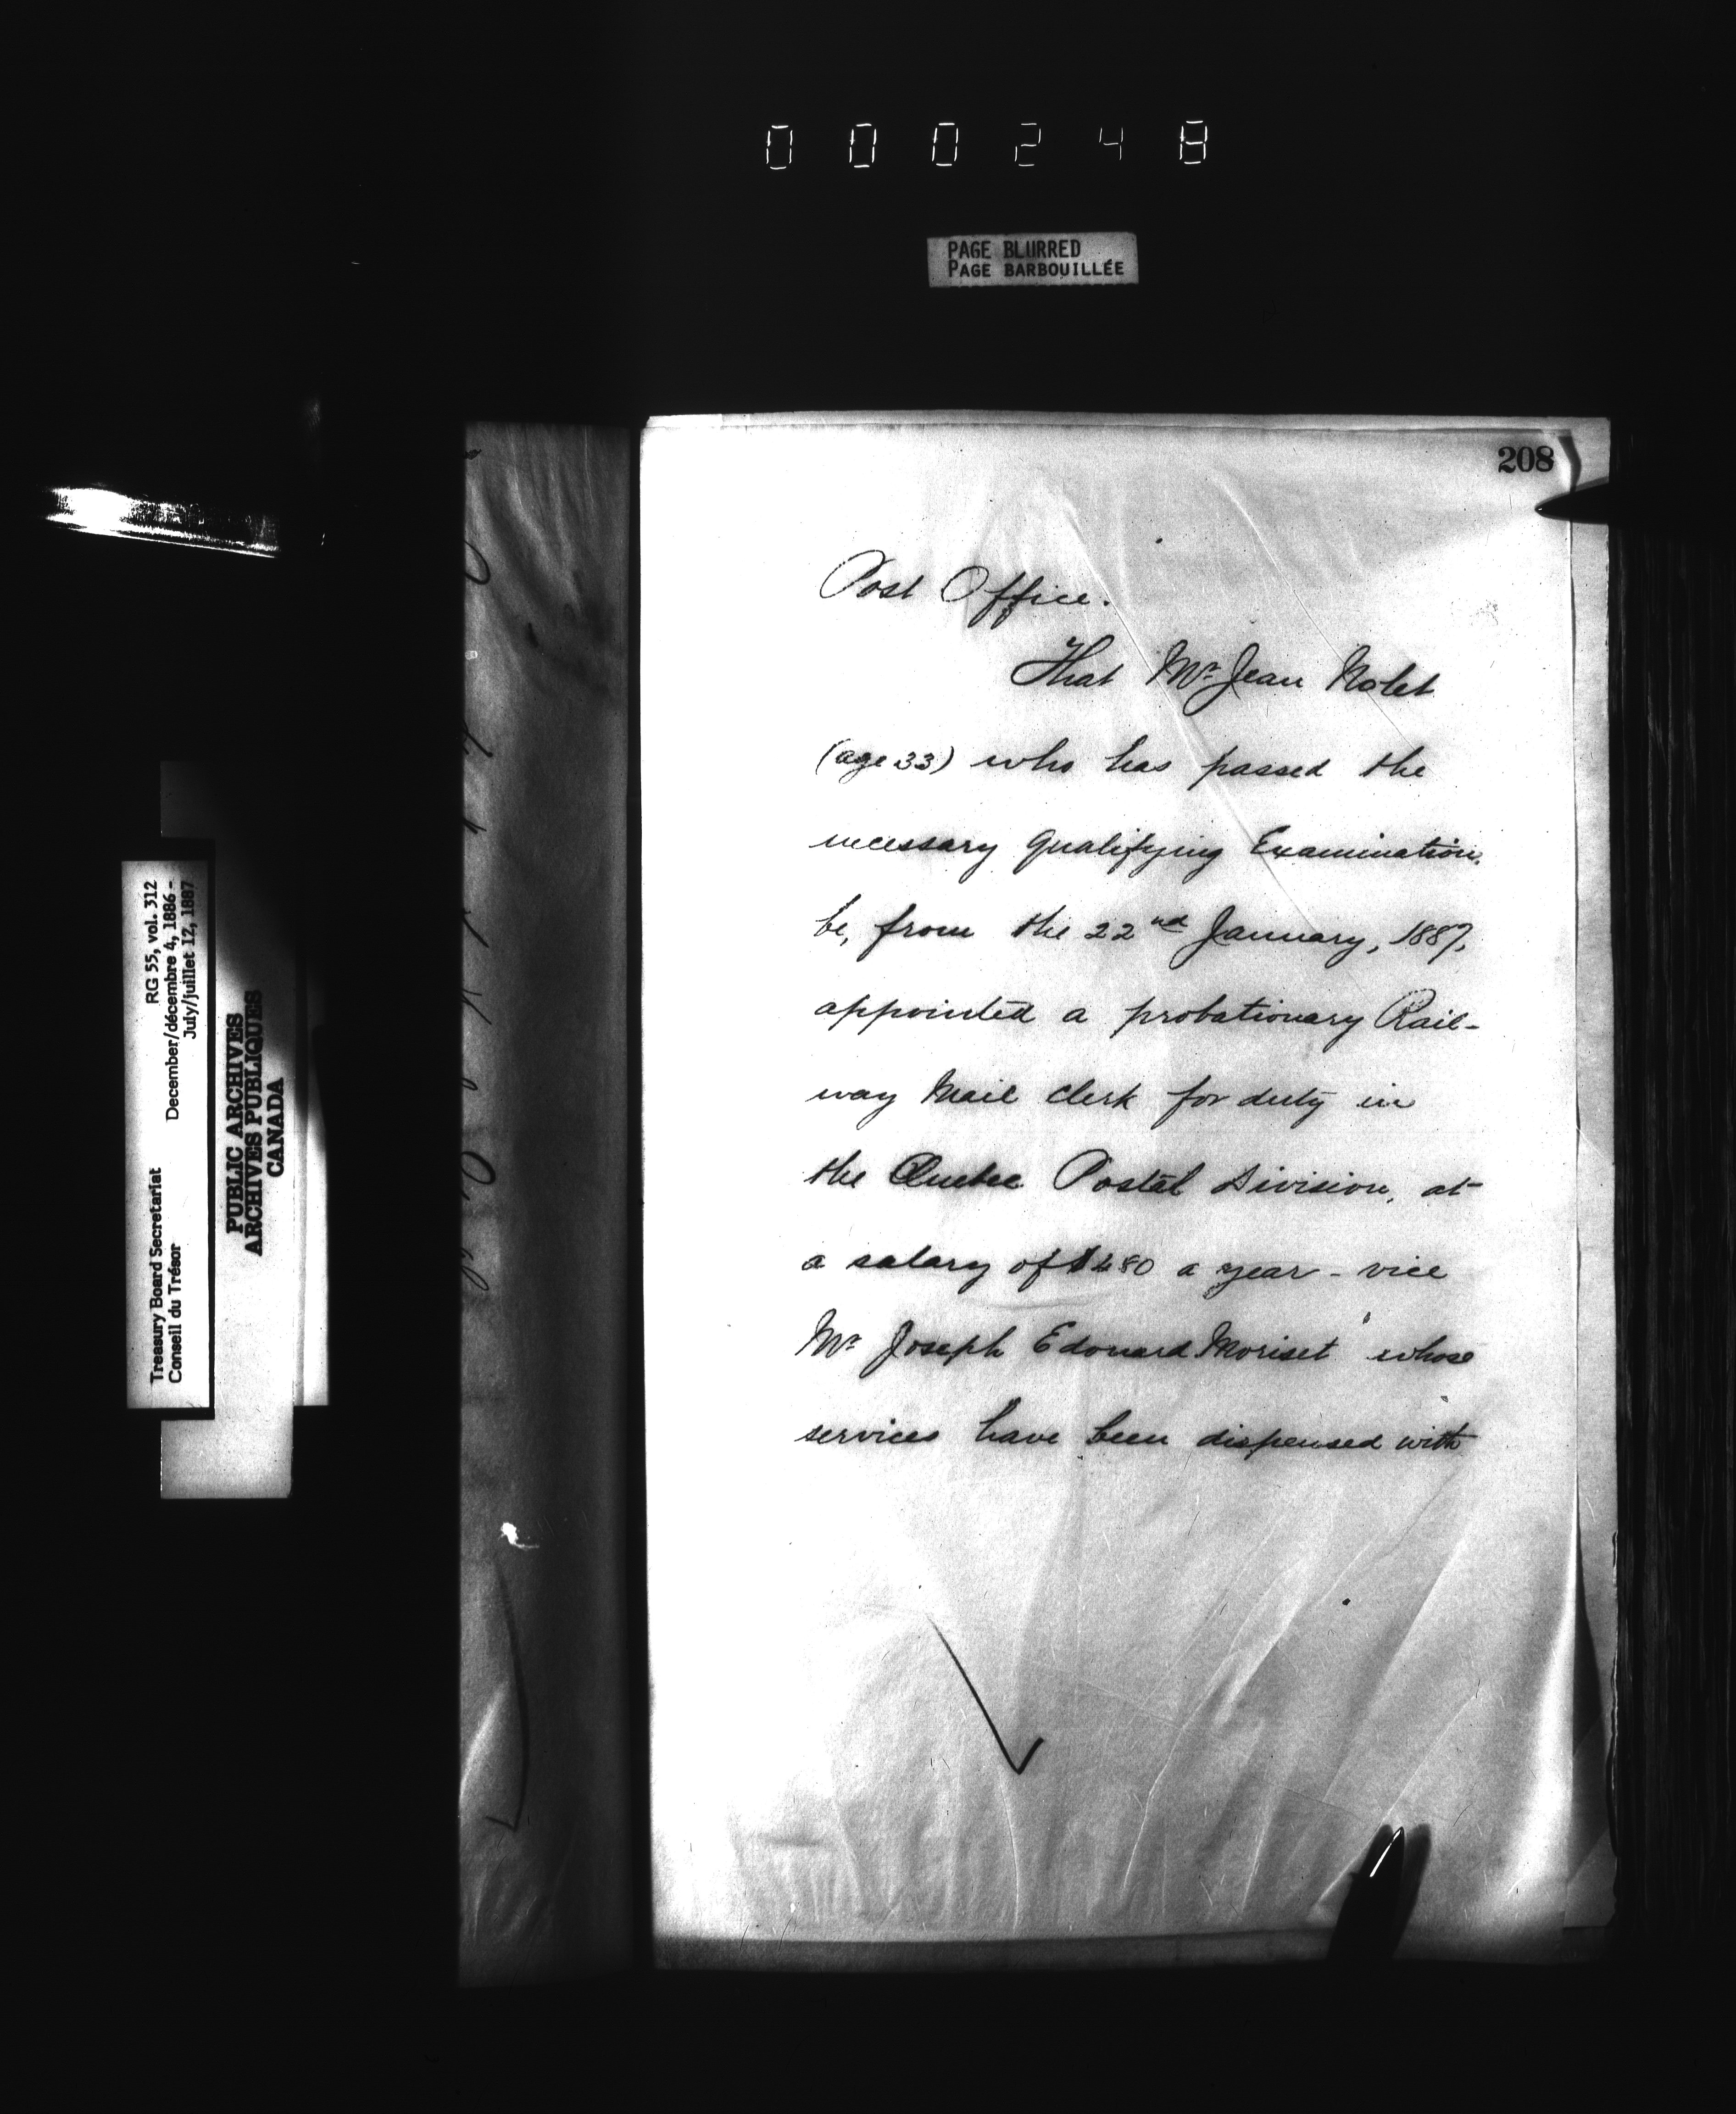 000248
PAGE BLURRED
PAGE BARBOUILLÉE
208
Post Office.
That Mr Jean Nolet
(age 33) who has passed the
necessary Qualifying Examination,
be, from the 22nd January, 1887,
appointed a probationary Rail-
way Mail Clerk for duty in
the Quebec Postal Division, at
a salary of $480 a year - vice
Mr Joseph Edouard Moriset whose
services have been dispensed with
Treasury Board Secretariat RG 55, vol. 312
Conseil du Trésor December/décembre 4, 1886 -
July/juillet 12, 1887
PUBLIC ARCHIVES
ARCHIVES PUBLIQUES
CANADA